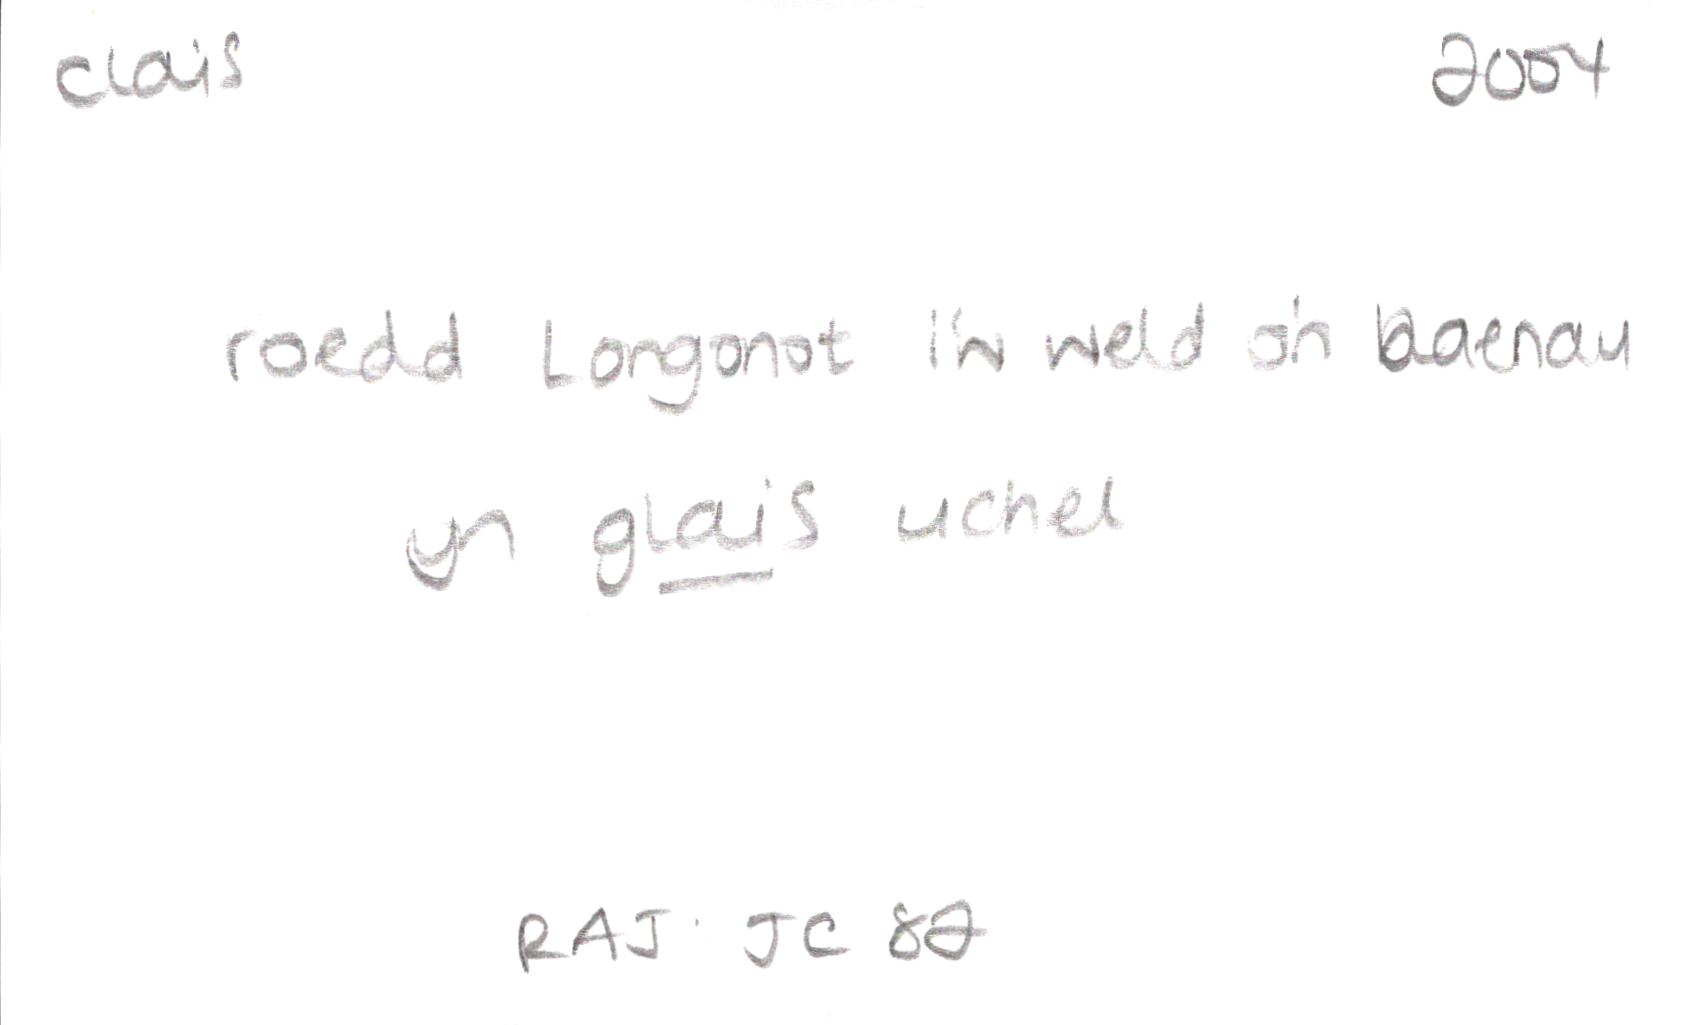 clais 2004
roedd Longonot i'w weld o'n blaenau
yn glais uchel
RAJ: JC 82